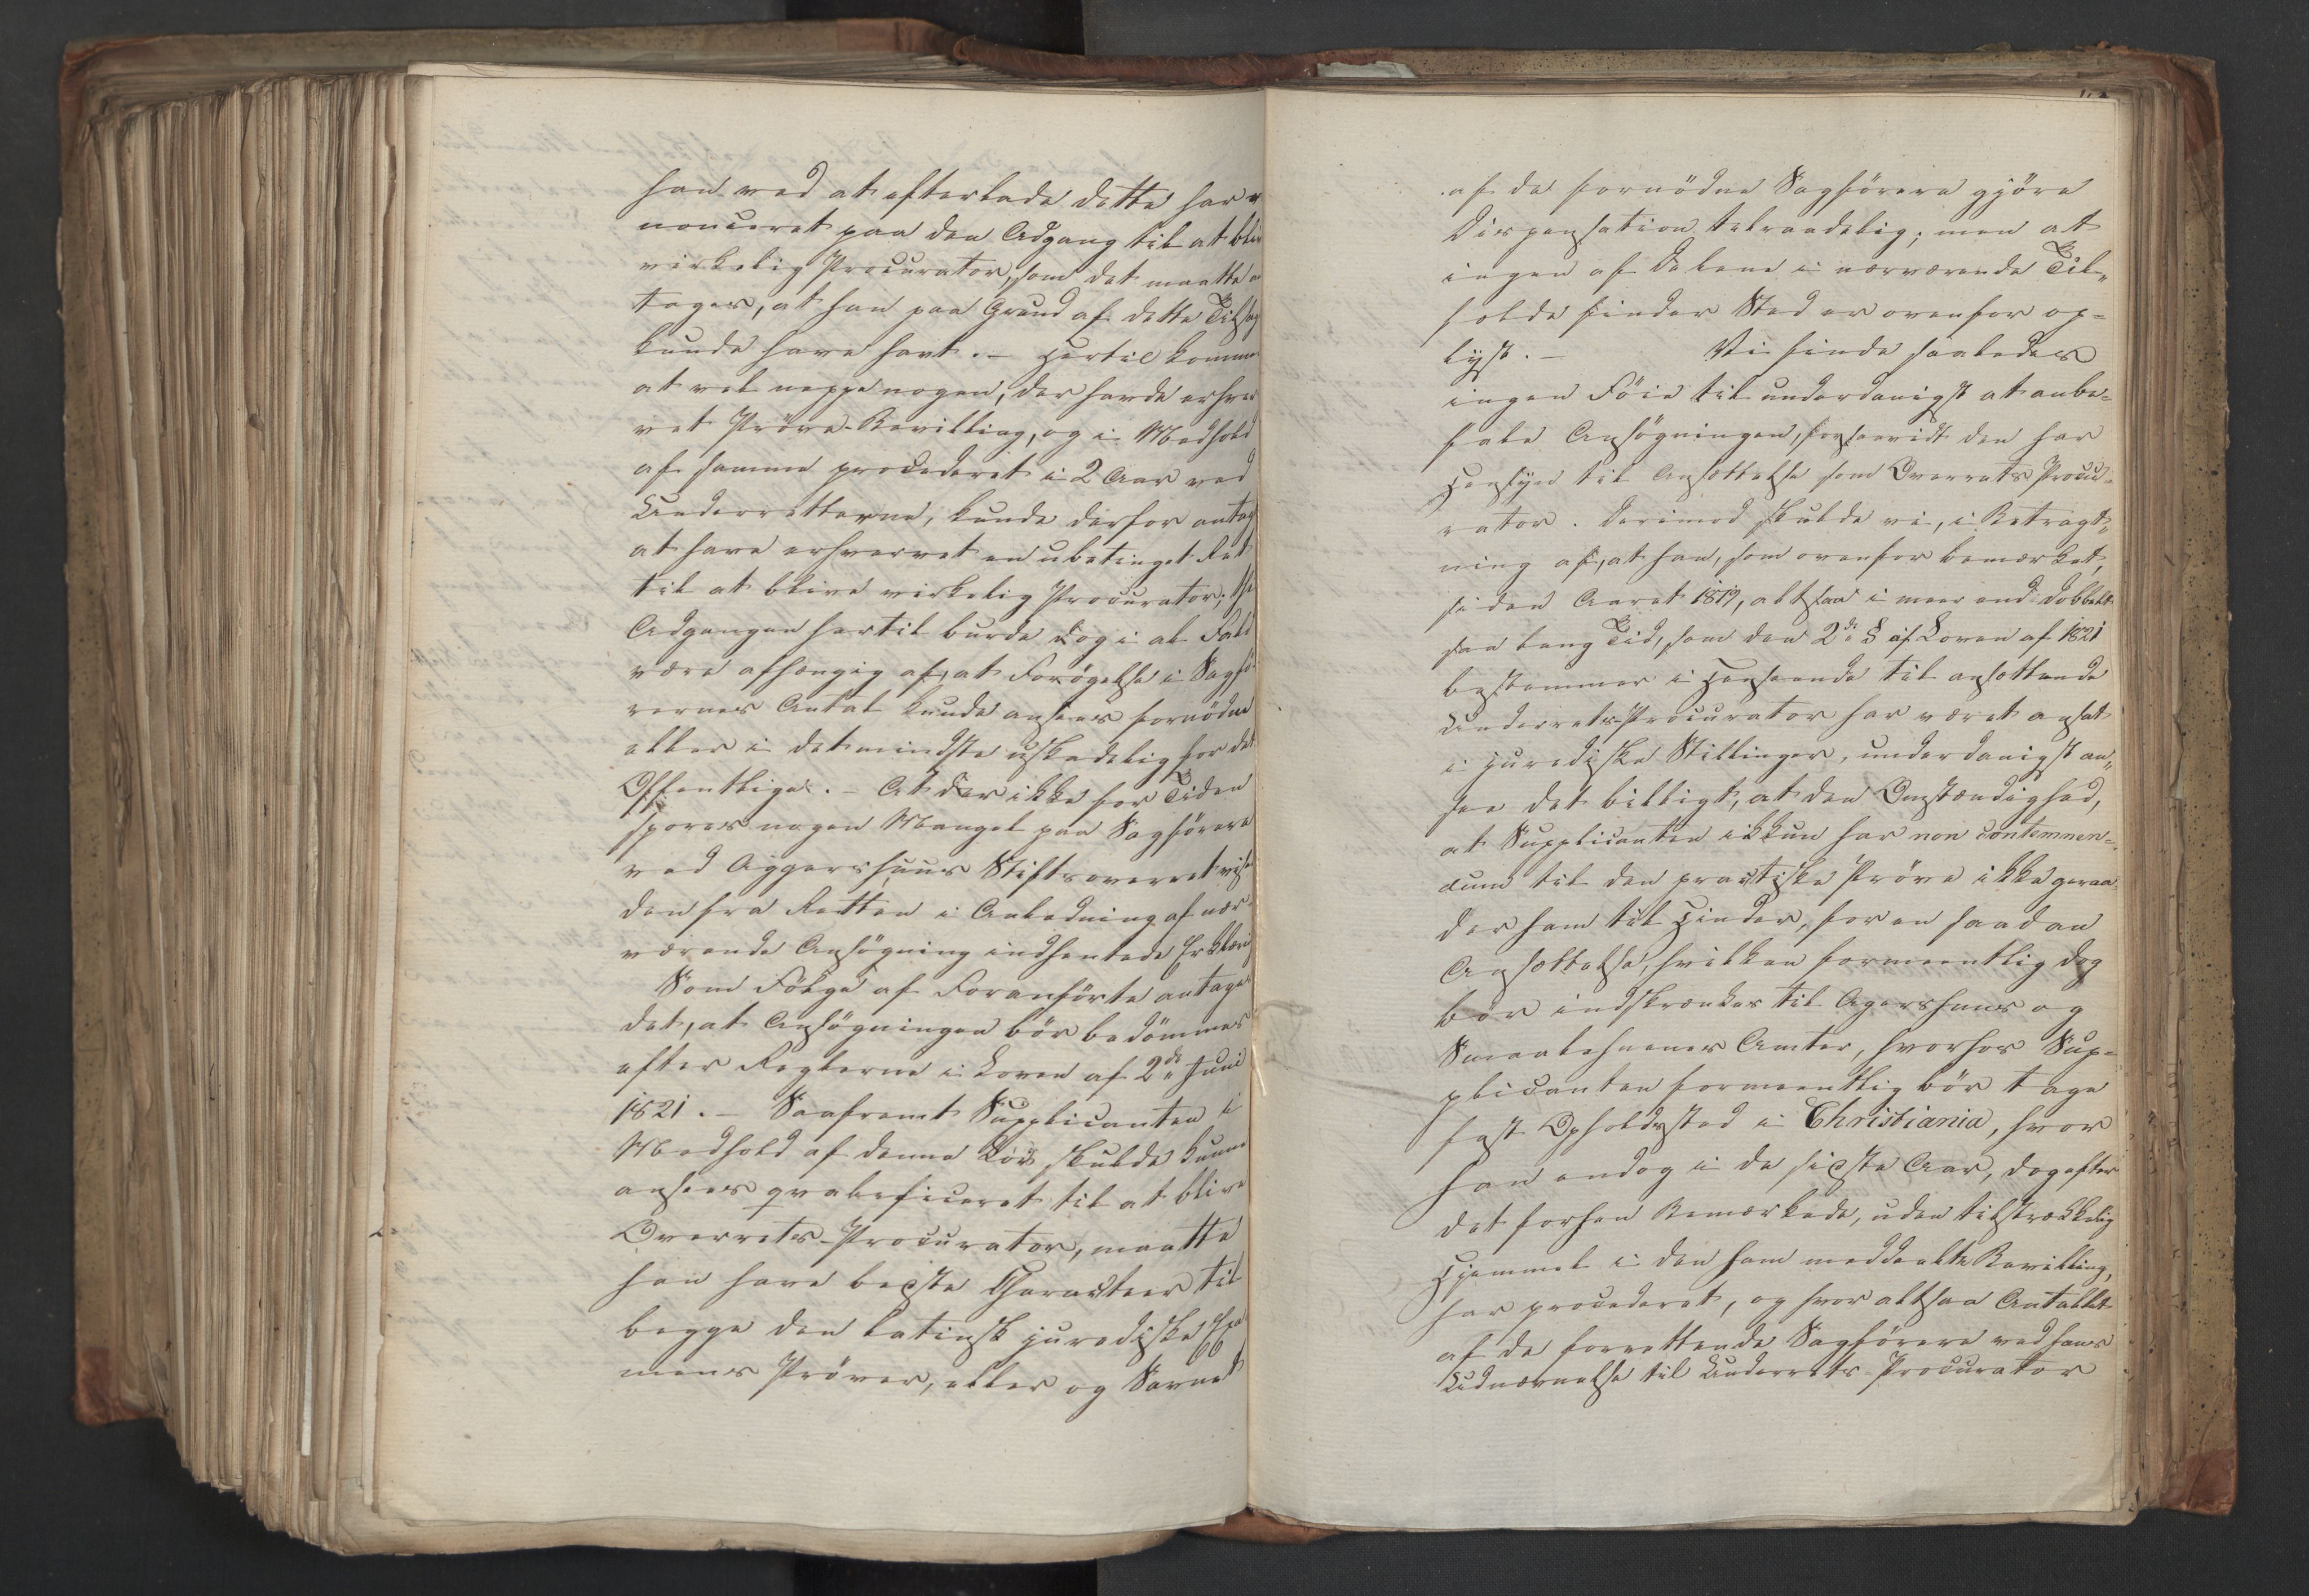 han ved at efterlade dette har re
nonceret paa den Adgang til at bliv
virkelig Procurator, som det maatte an
tages, at han paa Grund af dette Tilsag
kunde have havt. – Hertil kommer
at vel neppe nogen, der havde erhver
vet Prøve-Bevilling, og i Medhold
af samme procederet i 2 Aar ved
Underretterne, kunde derfor antag
at have erhvervet en ubetinget Ret
til at blive virkelig Procurator; thi
Adgangen hertil burde dog i al Fald
være afhængig af, at Forøgelse i Sagfø
rernes Antal kunde ansees fornøden
eller i det mindste uskadelig for det
Offentlige. – At der ikke for Tiden
spores nogen Mangel paa Sagførere
ved Aggershuus Stiftsoverret vise
den fra Retten i Anledning af nær
værende Ansøgning indhentede Erklæring
Som Følge af Foranførte antages
det, at Ansøgningen bør bedømmes
efter Reglerne i Loven af 2de Juni
1821. – Saafremt Supplicanten i
Medhold af denne Lov skulde kunne
ansees qvalificeret til at blive
Overrets-Procurator, maatte
han have bedste Character til
begge den latinsk juridiske Exa
mens Prøver, eller og Savnet
af de fornødne Sagførere gjøre
Dispensation tilraadelig; men at
ingen af Delene i nærværende Til„
fælde finder Sted er ovenfor op=
lyst. – Vi finde saaledes
ingen Føie til underdanigst at anbe=
fale Ansøgningen, forsaavidt den har
Hensyn til Ansættelse som Overrets Procu„
rator. Derimod skulde vi, i Betragt„
ning af, at han, som ovenfor bemærket,
siden Aaret 1819, altsaa i meer end dobbelt
saa lang Tid, som den 2den § af Loven af 1821
bestemmer i Henseende til ansættende
Underrets-Procurator har været ansat
i juridiske Stillinger, underdanigst an„
see det billigt, at den Omstændighed,
at Supplicanten ikkun har non contemnen=
dum til den practiske Prøve ikke geraa„
der ham til Hinder, for en saadan
Ansættelse, hvilken formeentlig dog
bør indskrænkes til Agershuus og
Smaalehnenes Amter, hvorhos Sup=
plicanten formeentlig bør tage
fast Opholdssted i Christiania, hvor
han endog i de sidste Aar, dog efter
det forhen Bemærkede, uden tilstrækkelig
Hjemmel i den ham meddeelte Bevilling,
har procederet, og hvor altsaa Antallet
af de forrettende Sagførere ved hans
Udnævnelse til Underrets-Procurator